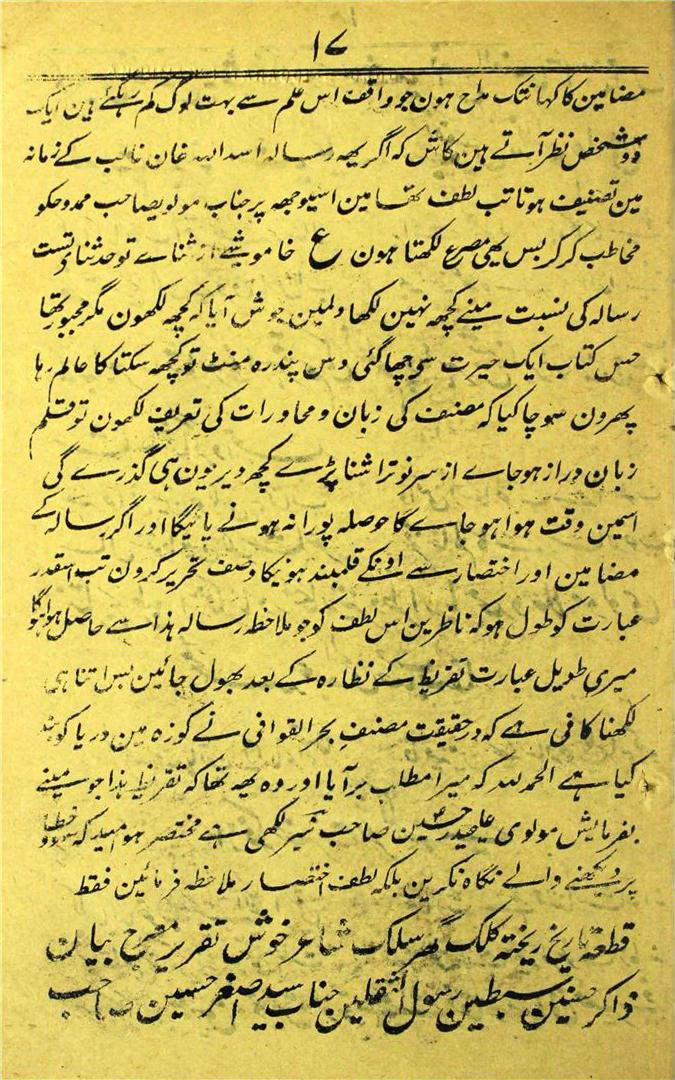 ۱۷
مضامین کا کہانتک مداح ہون جو واقف اس علم سے بہت لوگ کم رہگئے ہین ایک
دو شخص نظر آتے ہین کاش کہ اگر یہہ رسالہ اسد اللہ خان غالب کے زمانہ
مین تصنیف ہوتا تب لطف تھا مین اسیوجھہ پر جناب مولویصاحب ممدوحکو
مخاطب کر کر بس یھی مصرع لکھتا ہون ع خاموشے از ثناے تو حد ثناے تست
رسالہ کی نسبت مینے کچھہ نہین لکھا دلمین جوش آیا کہ کچھہ لکھون مگر مجبور تھا
جس کتاب ایک حیرت سی چھا گئی دس پندرہ منٹ تو کچھہ سکتا کا عالم رہا
پھرون سوچا کیا کہ مصنف کی زبان و محاورات کی تعریف لکھون تو قلم
زبان دراز ہو جاے از سر نو تراشنا پڑے کچھہ دیر یون ہی گذرے گی
اسمین وقت ہوا ہو جاے گا حوصلہ پورا نہ ہونے پائیگا اور اگر رسالہ کے
مضامین اور اختصار سے اونکے قلمبند ہونیکا وصف تحریر کرون تب اسقدر
عبارت کو طول ہو کہ ناظرین اس لطف کو جو ملاخطہ رسالہ ہذا سے حاصل ہوا ہوگا
میری طویل عبارت تقریظ کے نظارہ کے بعد بھول جائین بس اتنا ہی
لکھنا کافی ہے کہ در حقیقت مصنف بحر القوافی نے کوزہ مین دریا کو بند
کیا ہے الحمد للہ کہ میرا مطلب بر آیا اور وہ یھہ تھا کہ تقریظ ہذا جو مینے
بفرمایش مولوی علیحیدر حسین صاحب لکھی ہے مختصر ہو امید کہ سہو و خطا
پر دیکھنے والے نگاہ نکرین بلکہ لطف اختصار ملاحظہ فرمائین فقط
قطعہ تاریخ ریختہ کلک گھر سلک شاعر خوش تقریر بیان
ذاکر حسنین سبطین رسول الثقلین جناب سید اصغر حسین صاحب